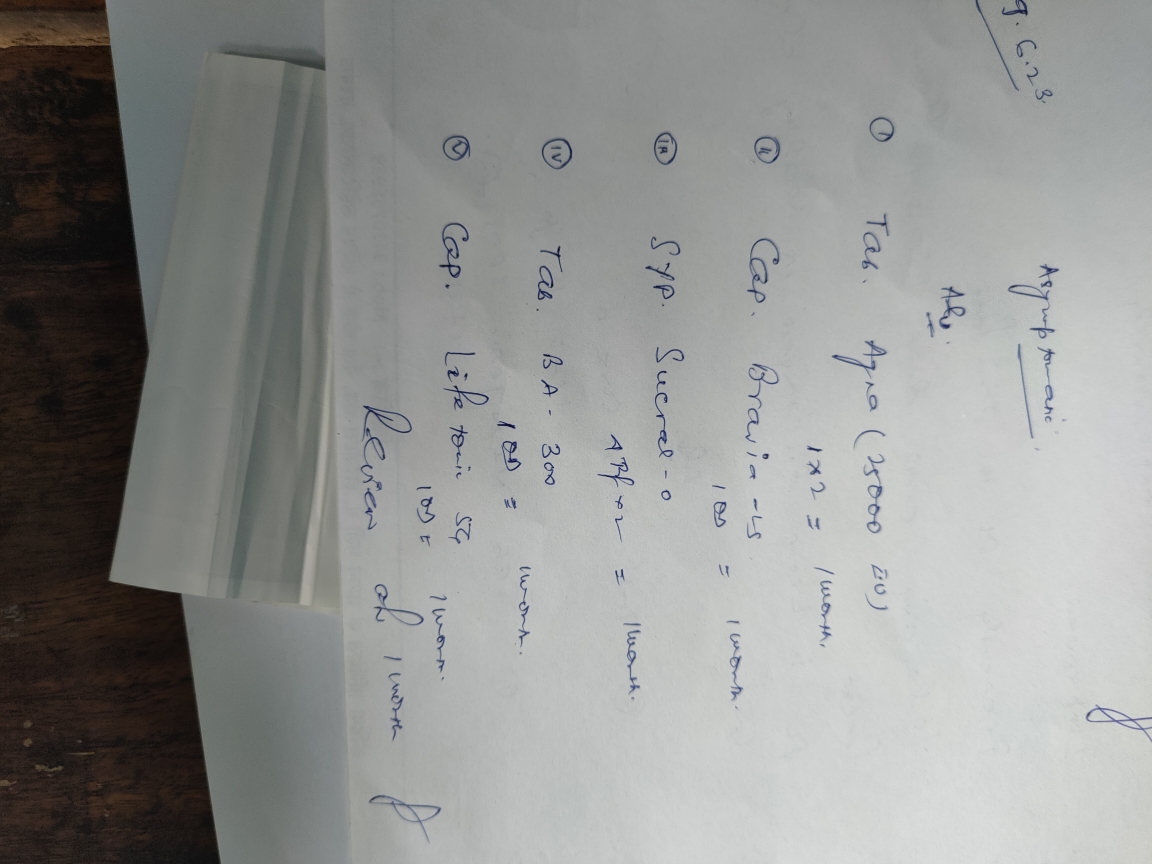 9.6.23.
Asymptomatic.
Adv.
(i) Tab. Agna (25000 IU)
1x2 = 1 month.
(ii) Cap. Bravia-LS.
1 OD = 1 month.
(iii) Syp. Sucral-O
ABf x2 = 1 month.
(iv) Tab. BA-300
1 OD = 1 month.
(v) Cap. Life tonic SG
1 OD = 1 month.
Review at 1 month